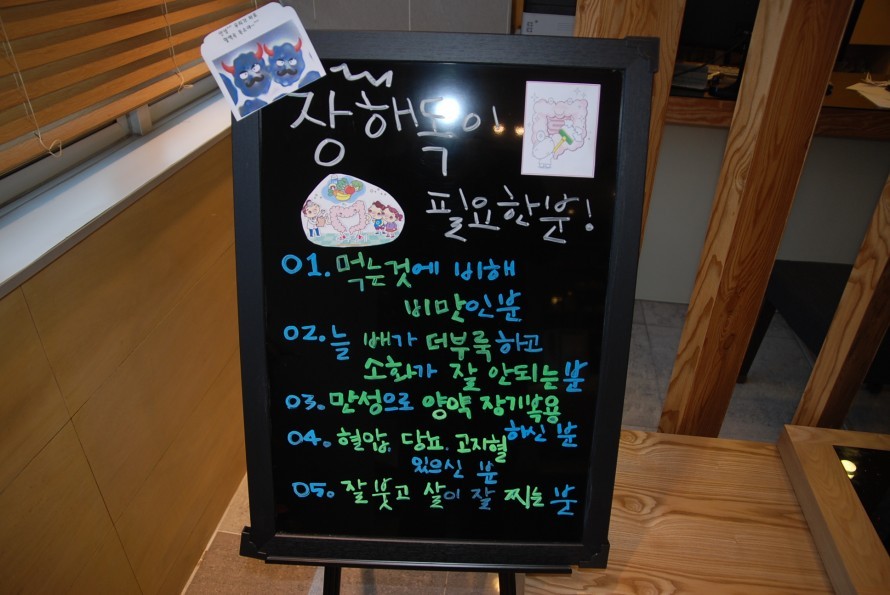 장해독이
필요한분!
01. 먹는것에 비해
비만인분
02. 늘 배가 더부룩하고
소화가 잘 안되는분
03. 만성으로 양약 장기복용
하신 분
04. 혈압, 당뇨, 고지혈
있으신 분
05. 잘 붓고 살이 잘 찌는 분